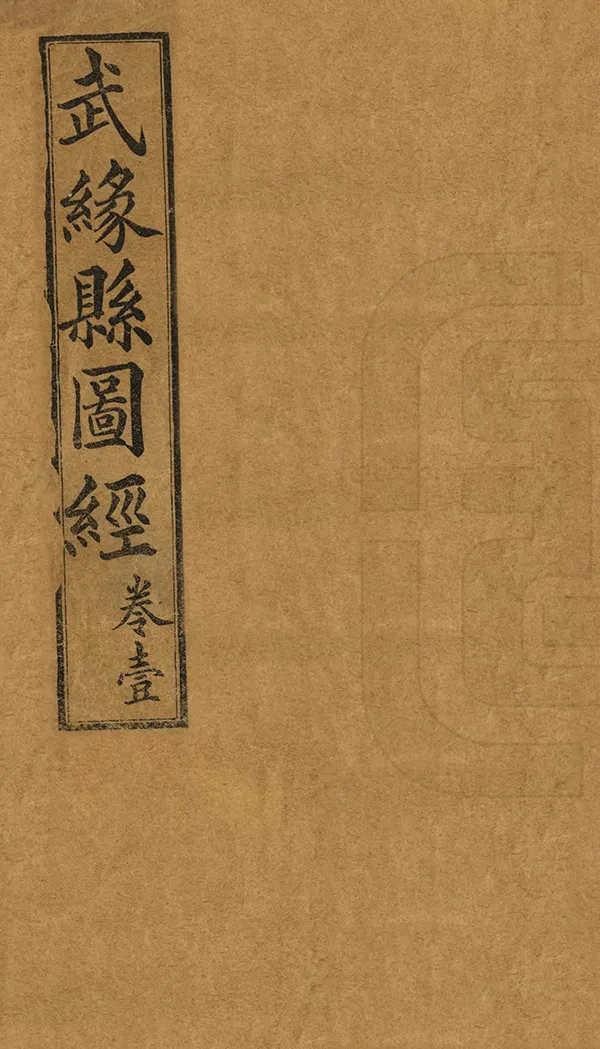 武緣縣圖經
卷壹